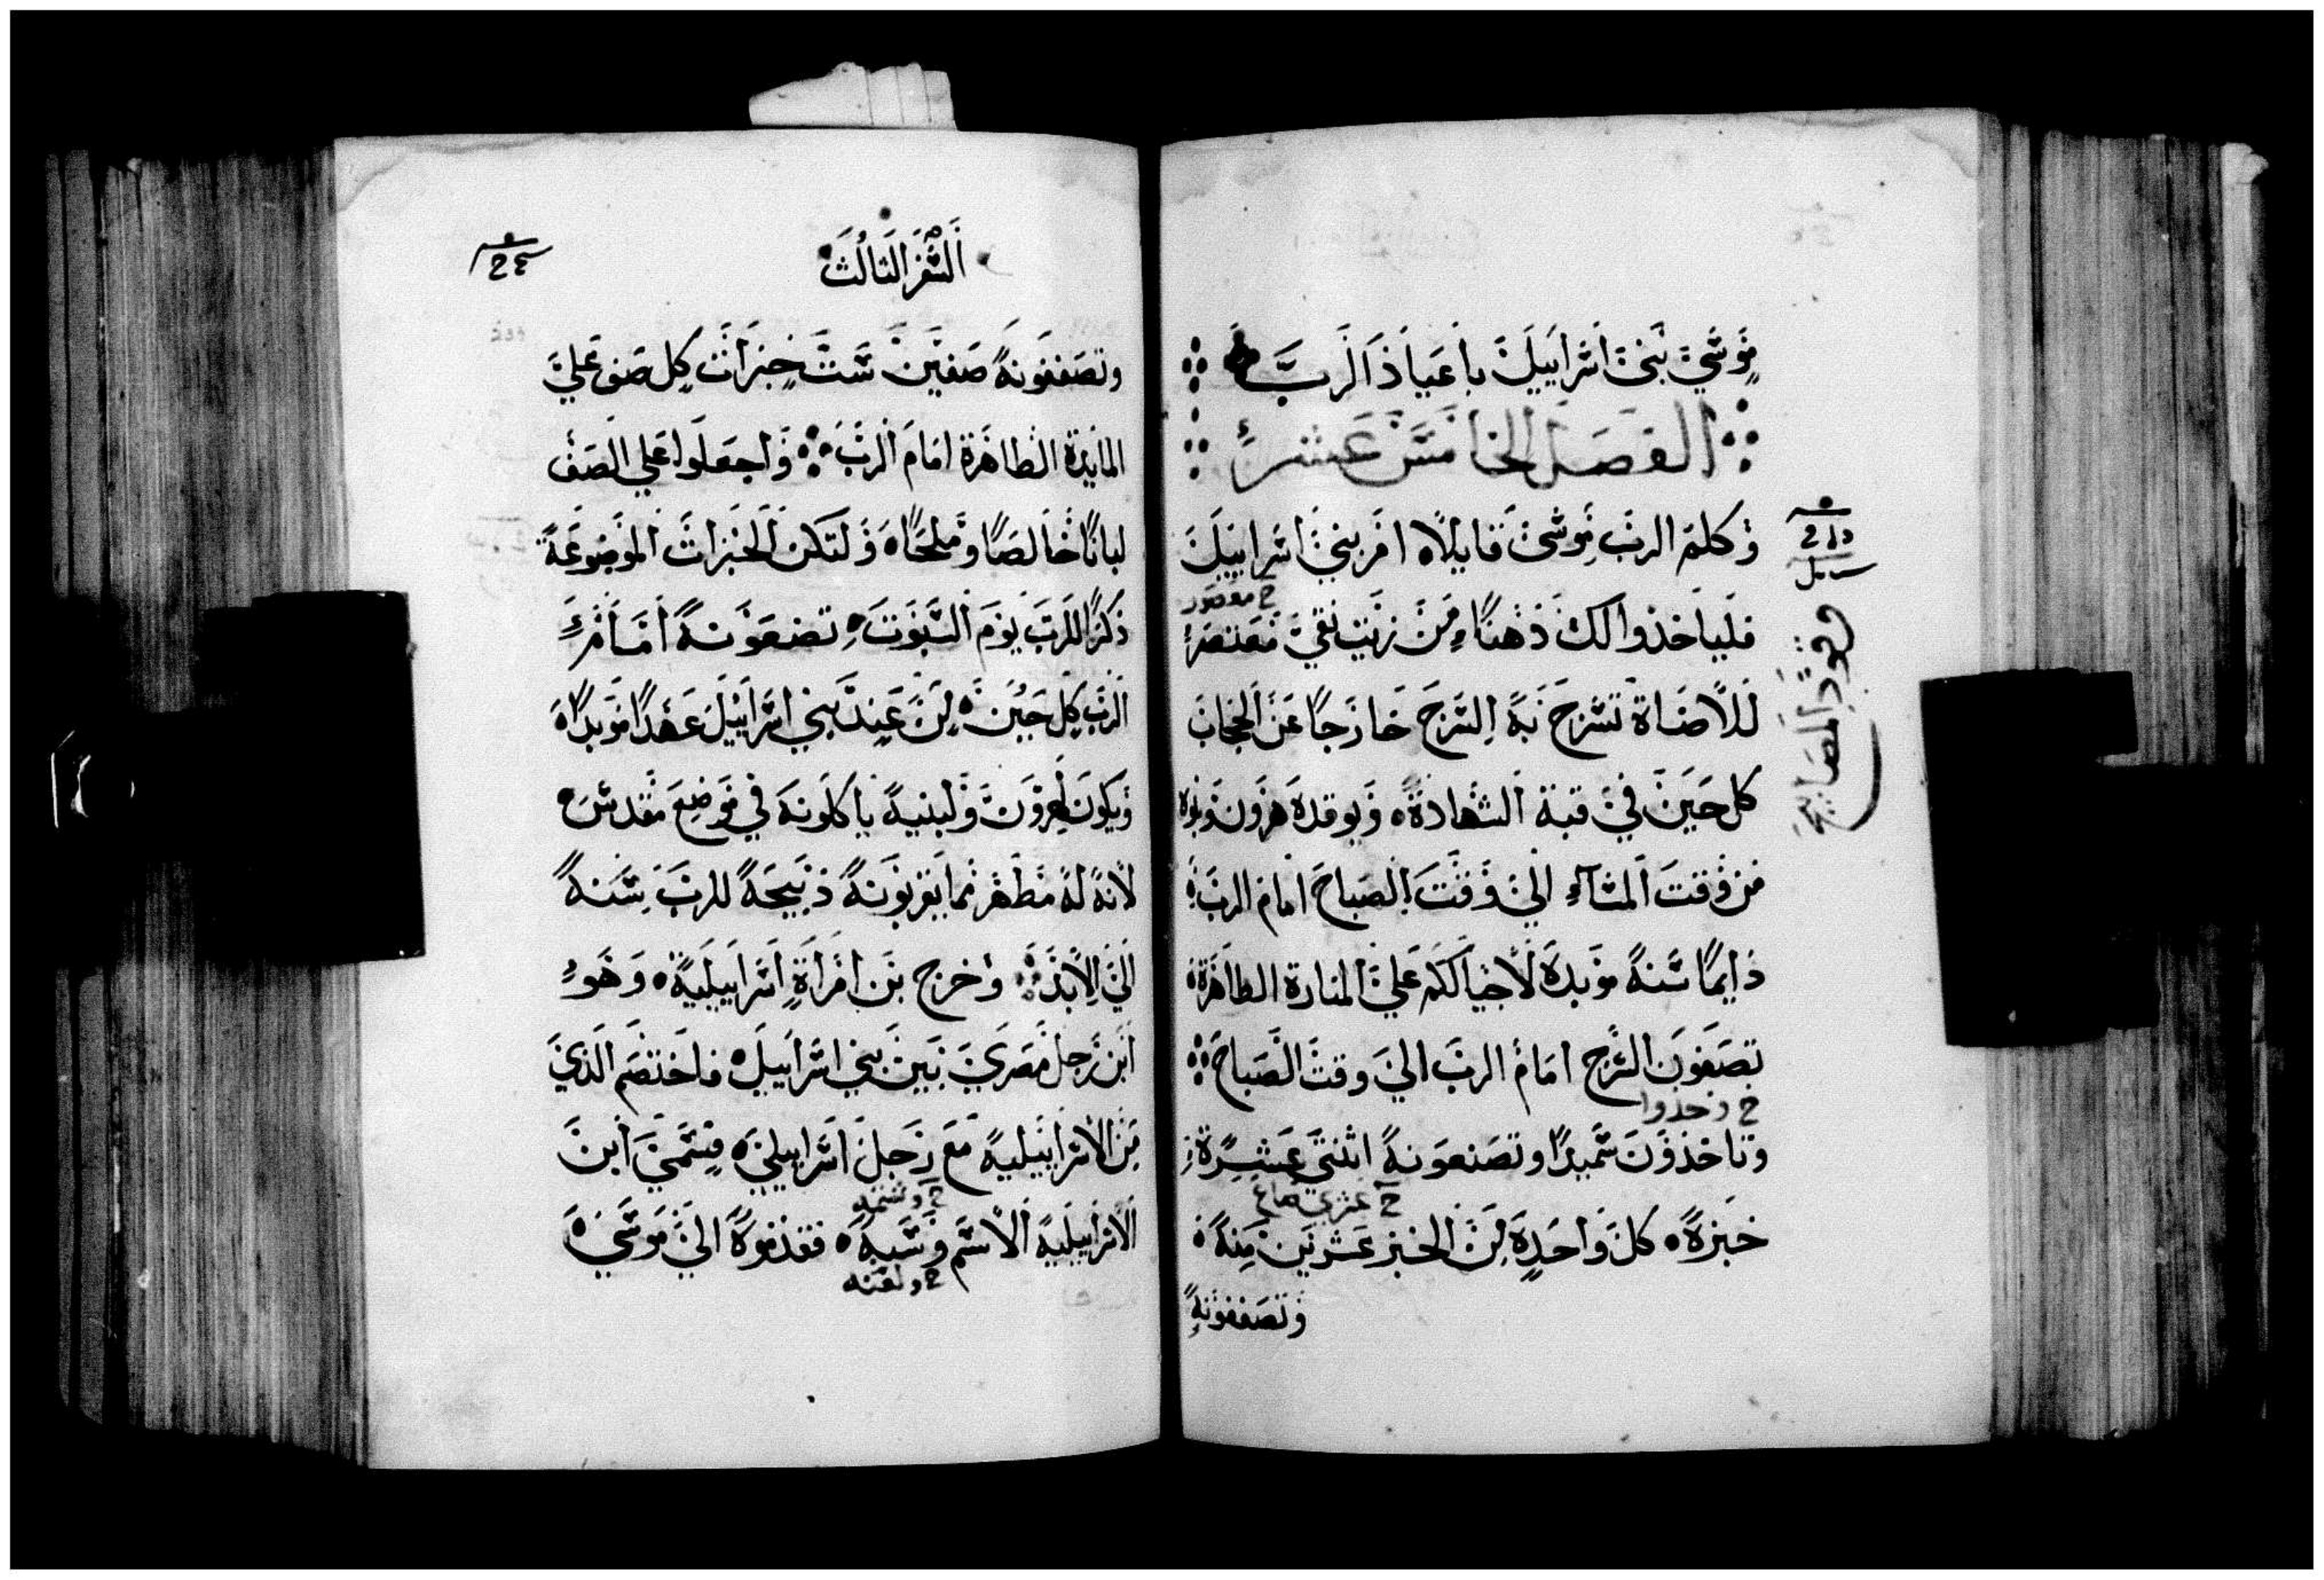 موسي بني اسراييل باعياد الرب
الفصل الخامس عشر
وكلم الرب موسي قايلا امر بني اسراييل
ح معصور
فلياخذوا لك دهنا من زيت نقي معتصر
للاضاة تسرج به السرج خارجا عن الحجاب
كل حين في قبة الشهادة ويوقده هرون وبنوه
من وقت المسآء الي وقت الصباح امام الرب
دايما سنة موبدة لاجيالكم علي المنارة الطاهرة
تصفون السرج امام الرب الي وقت الصباح
ح وخذوا
وتاخذون سميدا وتصنعونه اثنتي عشرة
ح عشري صاع
خبزة كل واحدة من الخبز عشرين منه
وتصففونه
وقود المصابيح
السفر الثالث
وتصففونه صفين ست خبزات كل صف علي
المايدة الطاهرة امام الرب واجعلوا علي الصف
لبانا خالصا وملحا ولتكن الخبزات الموضوعة
ذكرا للرب يوم السبوت تضعونه امام
الرب كل حين من عند بني اسراييل عهدا موبدا
ويكون لهرون ولبنيه ياكلونه في موضع مقدس
لانه له مطهر مما يقربونه ذبيحة للرب سنة
الي الابد وخرج بن امراة اسراييلية وهو
ابن رجل مصري بين بني اسراييل فاختصم الذي
من الاسراييلية مع رجل اسراييلي فسمي ابن
ح وشتمه
الاسراييلية الاسم وسبه فقدموه الي موسي
ح ولعنه